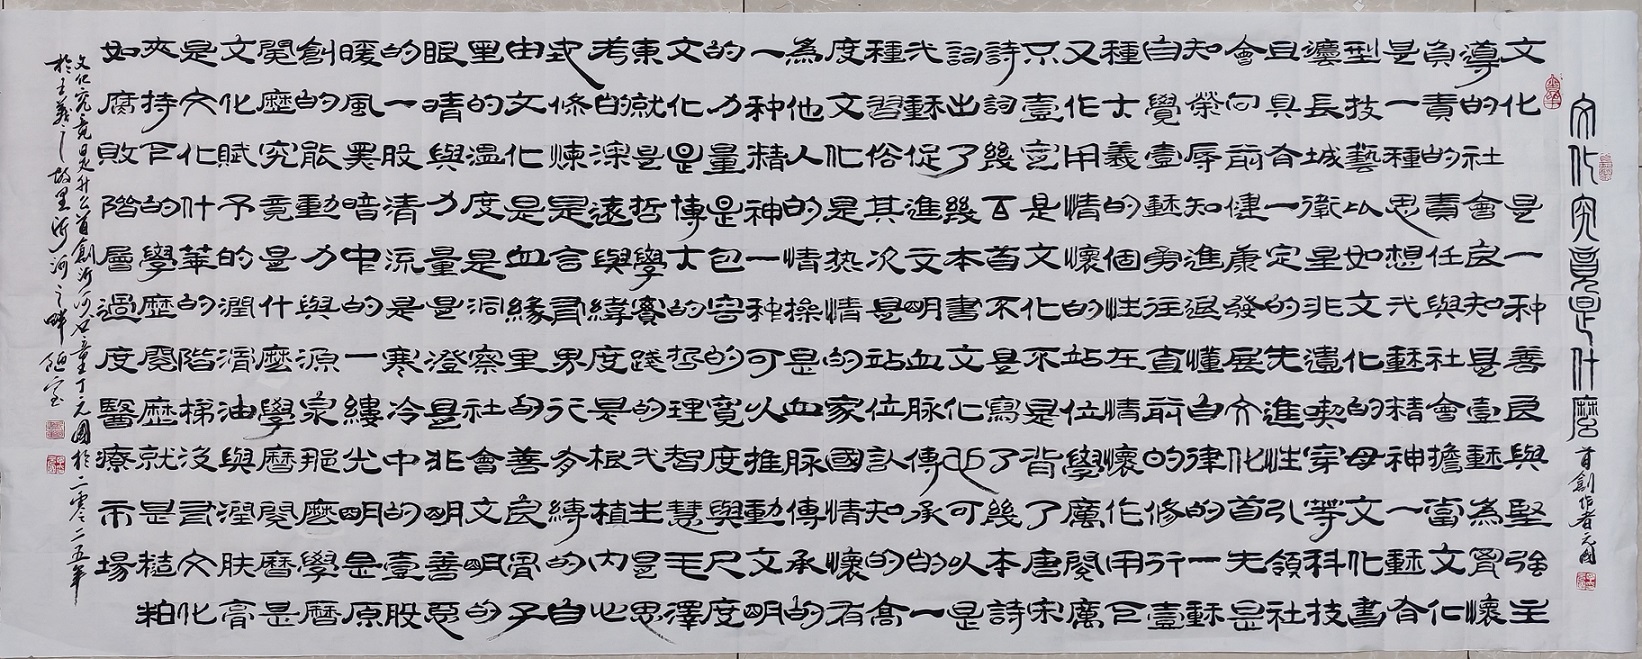 文化究竟是什麼
首創作者元國
文化是一种善良與堅強主
導的社會良知是壹藝為質懷
負責的責任與社會擔當文化
是一種思想代藝精神一藝書
型技藝以如文化的母文化有
讓長城衛星非遺喫穿等科技
且具有一定的先進性引領社
會向前健康發展文化首先是
知榮辱知進退懂自律的一藝
自覺壹藝勇往直前的修行壹
種士義的個性左情懷作用已
又作用情懷的站位學廣閱廣
只壹言是文化不是背了唐宋
詩詞幾百首不是寫了幾本詩
詞出了幾本書文化也可以是
代藝促進文明血脈傳承的一
種習俗其次是站位認知的高
度文化是热情的家國情懷有
為他人的情操是血脈傳承的
一种精神一种可以推動文明
的力量是包容的寬度與尺度
文化是博大的哲理智慧毛澤
東就是哲學賽踐的代生是思
考的深遠與緯度是根植內心
式條煉是言有界行多縛的自
由文化是血緣里的善良男子
里的溫度是洞察社會文明的
眼晴與力量是澄是非明善惡
的一股清流是寒冷中的壹股
暖風黑暗中的一縷光明是原
創的能動力與源泉那麼學曆
閱歷究竟是什麼學曆閱曆是
文化賦予的潤滑油與潤膚膏
是文化什華的階梯沒有文化
夾持下的學歷魔歷就是糙粕
如腐敗階層過度醫療市場
文化究竟是什么首創沂河石童王丁元國於二零二五年
於王羲之故里沂河之畔